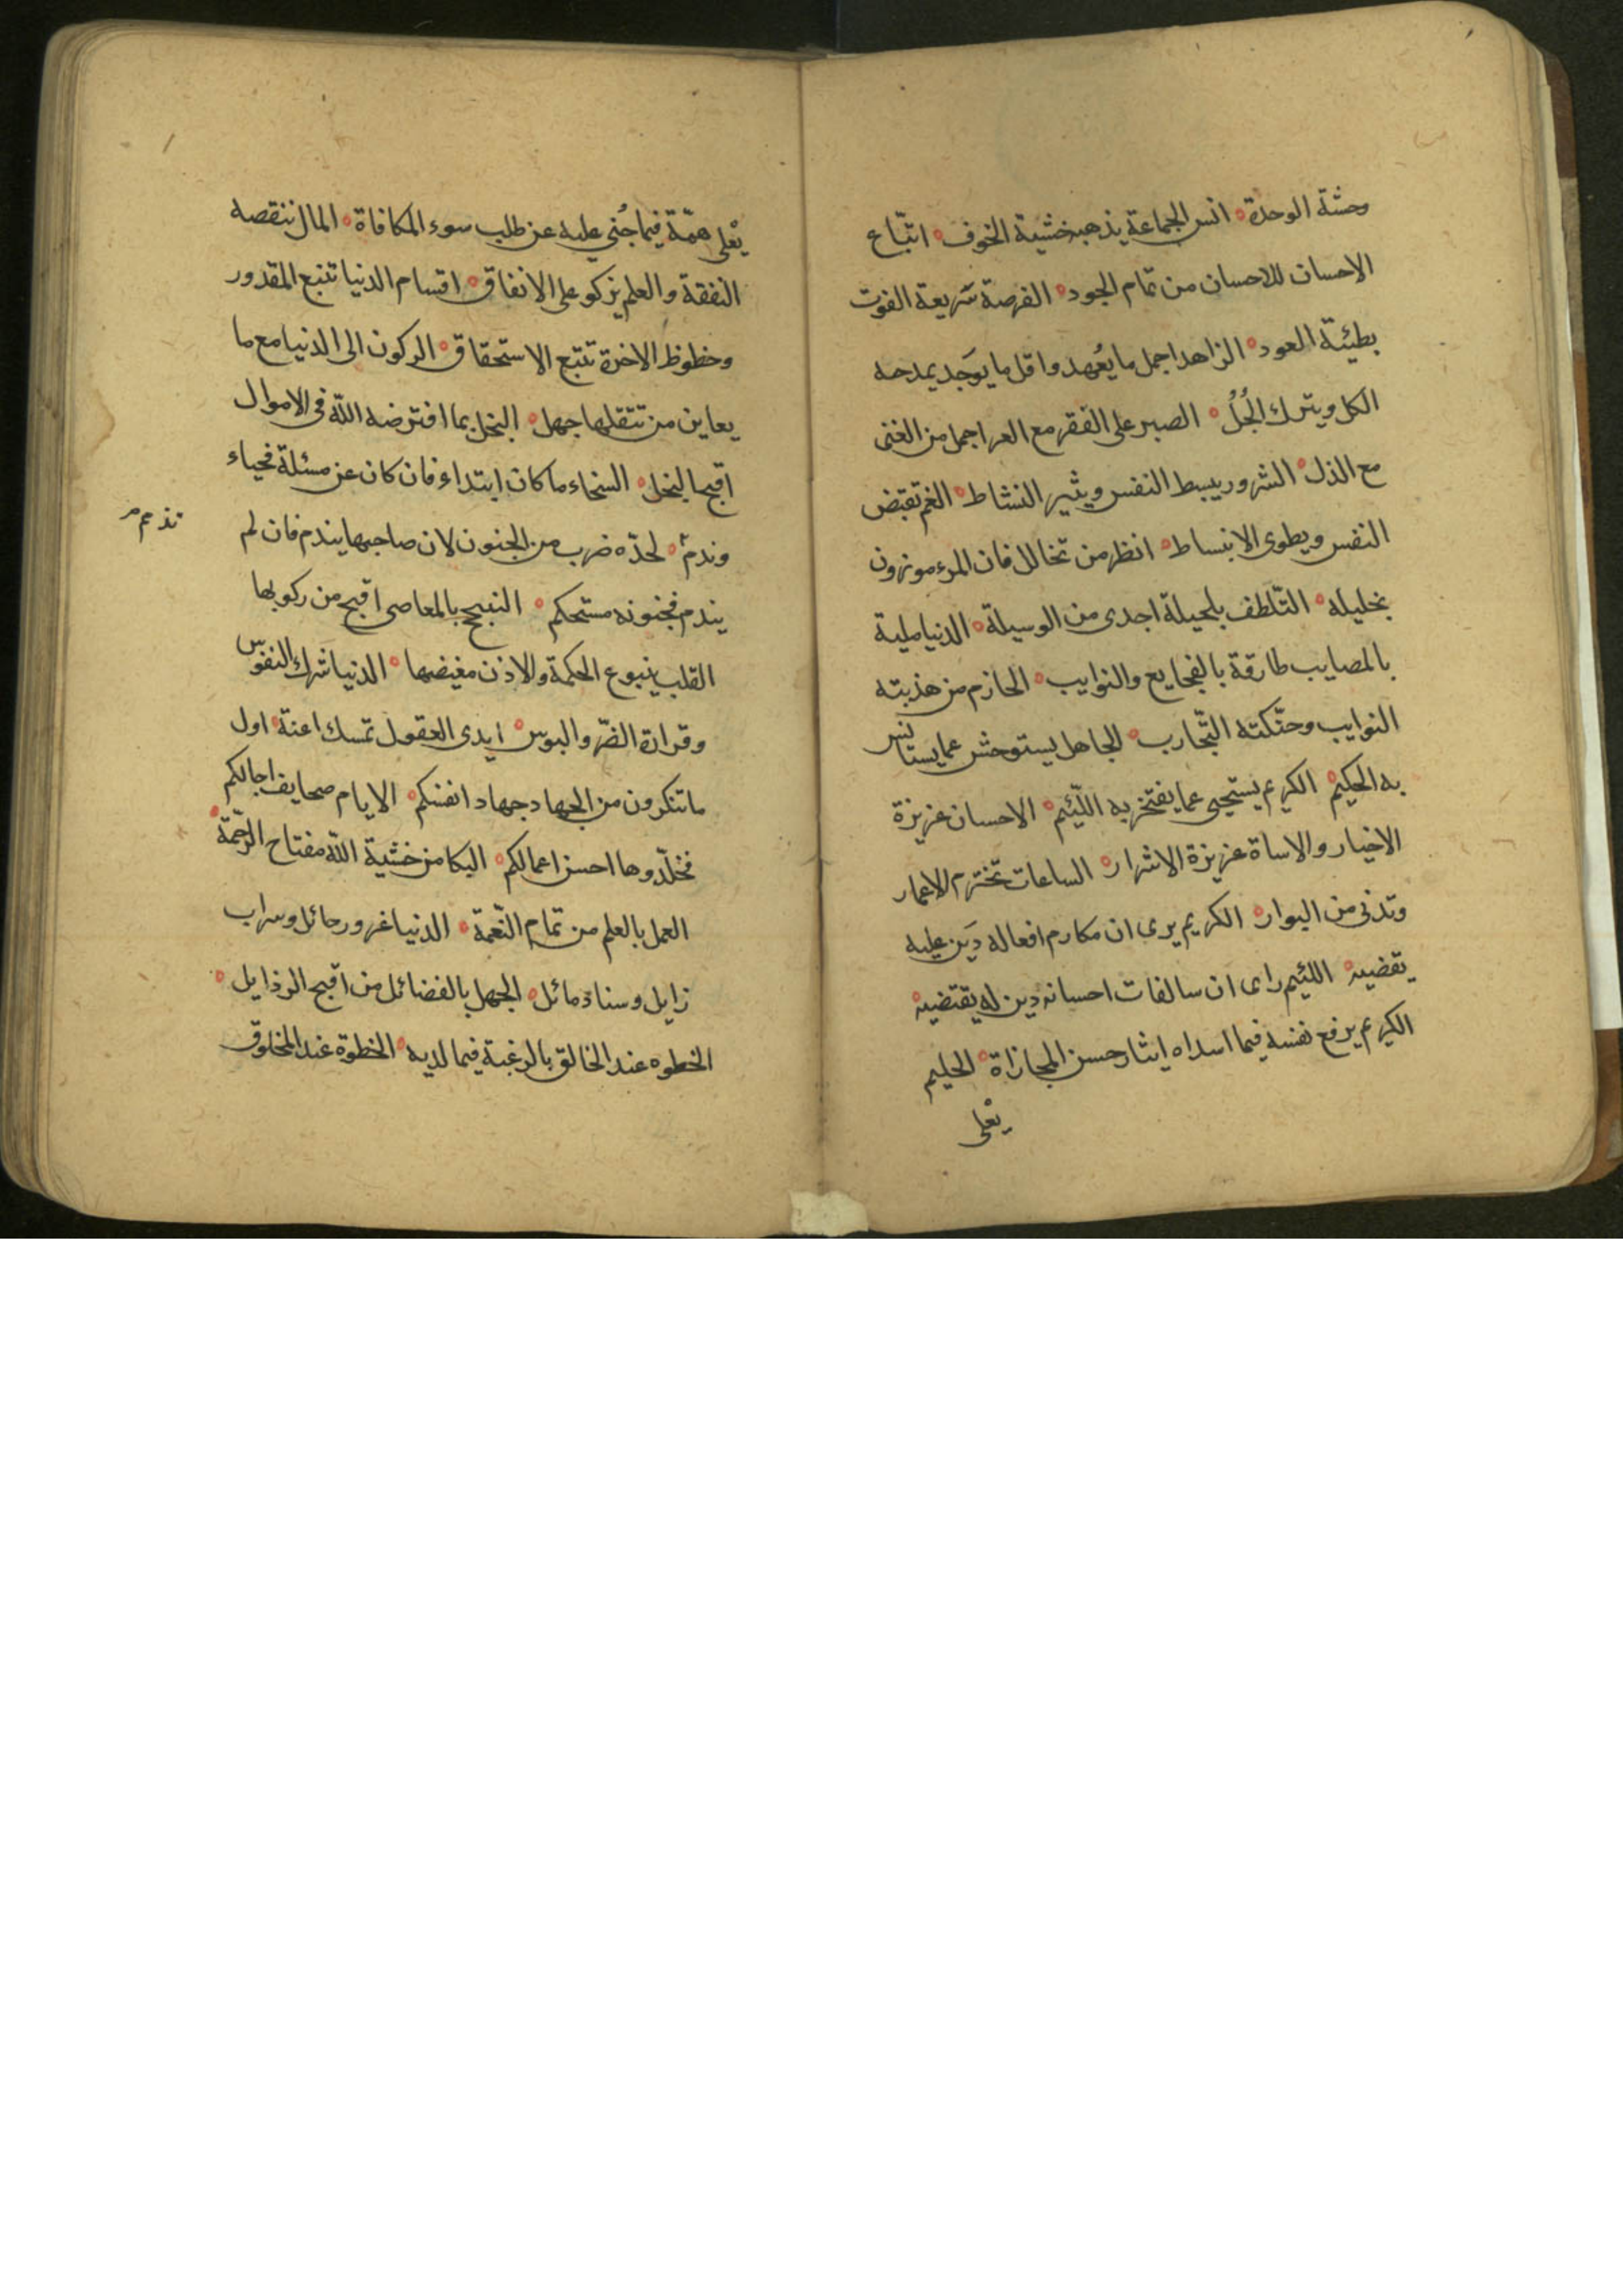 وحشة الوحدة ۰ انس الجماعة يذهب خشية الخوف ۰ اتّباع
الاحسان للاحسان من تمام الجود ۰ الفرصة سريعة الفوت
بطيئة العود ۰ الزاهد اجمل ما يُعهد واقل ما يوَجد يمدحه
الكل ويترك الجُلُ ۰ الصبر على الفقر مع العز اجمل من الغنى
مع الذل ۰ السرور يبسط النفس ويثير النشاط ۰ الغم تقبض
النفس ويطوى الانبساط ۰ انظر من تخالل فان المرء موزون
بخليله ۰ التّلطف بلحيلة اجدى من الوسيلة ۰ الدنيا مليئة
بالمصايب طارقة بالفجايع والنوايب ۰ الحازم من هذبته
النوايب وحنّكته التّجارب ۰ الجاهل يستوحش عما يستانس
به الحكيم ۰ الكريم يستحيى عما يفتخر به اللّئيم ۰ الاحسان غريزة
الاخيار والاساة غريزة الاشرار ۰ الساعات تخترم الاعمار
وتدنى من البوار ۰ الكريم يرى ان مكارم افعاله دَين عليه
يقضيه ۰ اللئيم راى ان سالفات احسانه دين له يقتضيه ۰
الكريم يرفع نفسه فيما اسداه ايثار حسن المجازاة ۰ الحليم
يعْلى
يعْلى همّة فيما جُني عليه عن طلب سوء المكافاة ۰ المال تنقصه
النفقة والعلم يزكو على الانفاق ۰ اقسام الدنيا تتبع المقدور
وحظوظ الاخرة تتبع الاستحقاق ۰ الركون الى الدنيا مع ما
يعاين من تنقلها جهل ۰ البخل بما افترضه اللّه فى الاموال
اقبح البخل ۰ السخاء ما كان ابتداء فان كان عن مسئلة فحياء
وندمٌ ۰ لحدّه ضرب من الجنون لان صاحبها يندم فان لم
يندم فجنونه مستحكم ۰ التبجح بالمعاصى اقبح من ركوبها
القلب ينبوع الحكمة والاذن مغيضها ۰ الدنيا شرك النفوس
وقرارة الضّر والبوس ۰ ايدى العقول تمسك اعنة ۰ اول
ما تنكرون من الجهاد جهاد انفسكم ۰ الايام صحايف اجالكم
فخلّدوها احسن اعمالكم ۰ البكا من خشية اللّه مفتاح الرّحمّة ۰
العمل بالعلم من تمام النّعمة ۰ الدنيا غرور حائل وسراب
زايل وسناد مائل ۰ الجهل بالفضائل من اقبح الرذايل ۰
الخطوه عند الخالق بالرغبة فيما لديه ۰ الخطوة عند المخلوق